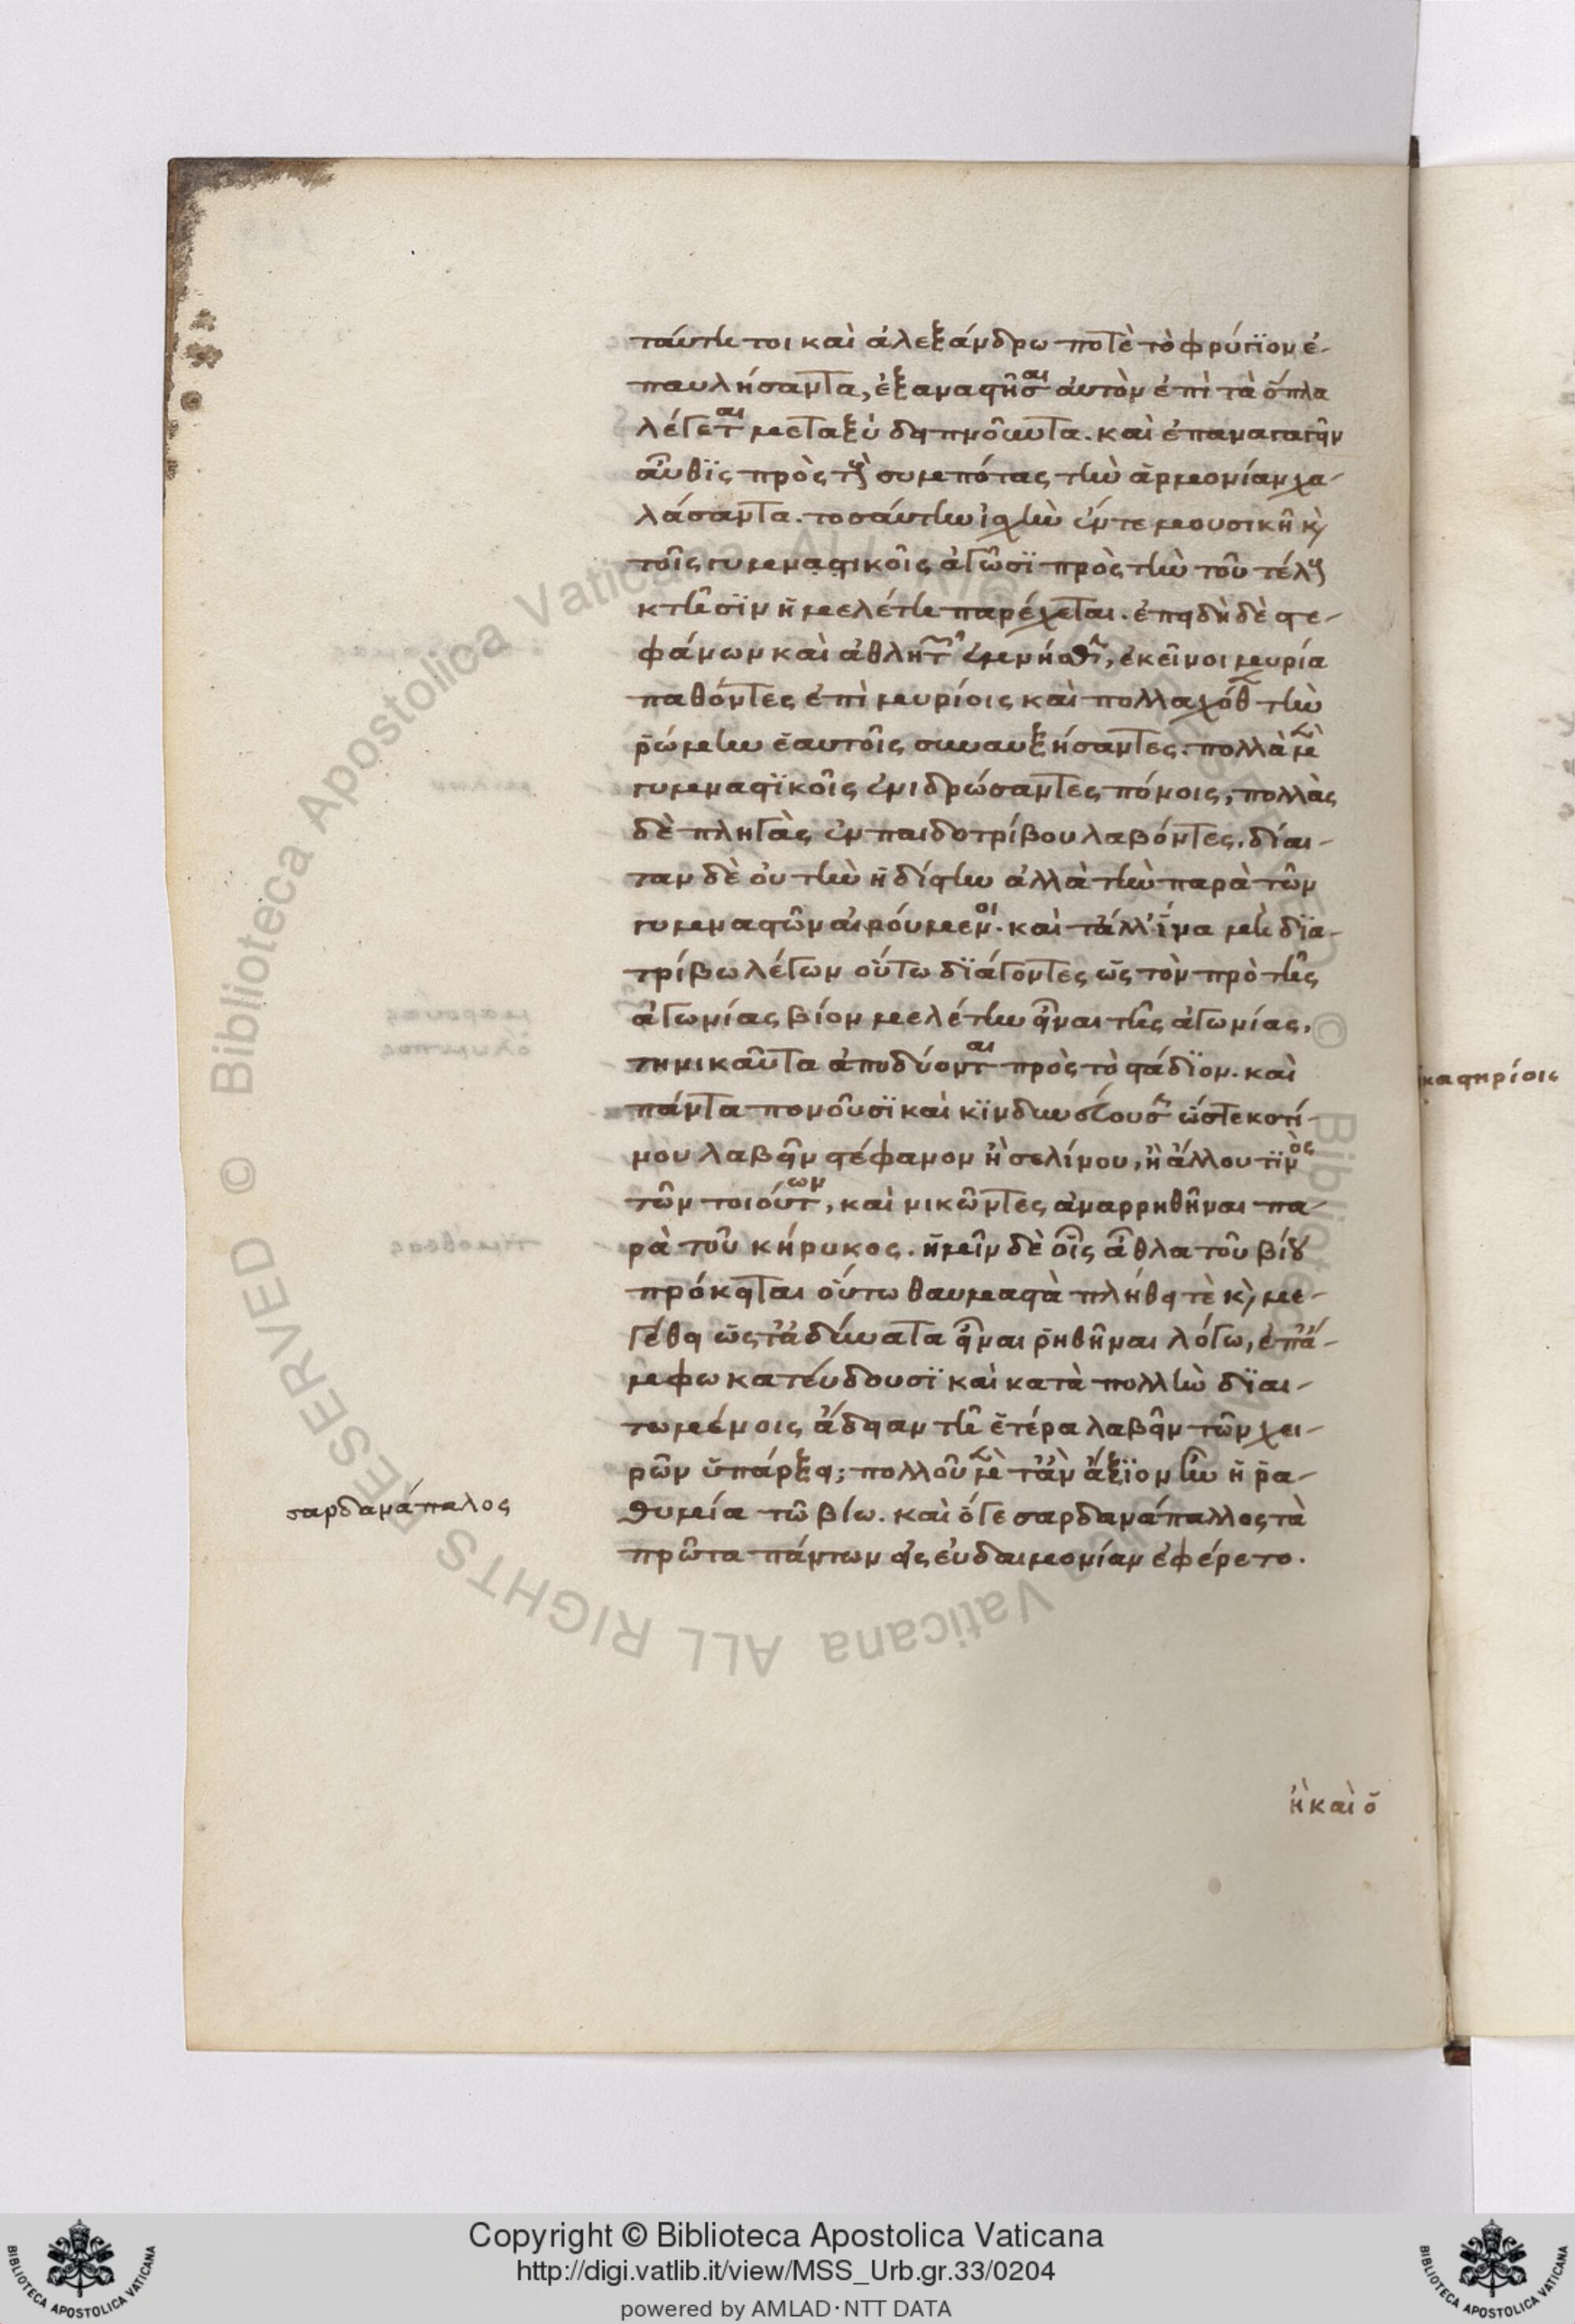 ταύτη τοι καὶ ἀλεξάνδρω ποτὲ τὸ φρύγϊον ἐ-
παυλήσαντα, ἐξαναστῆσαι αὐτὸν ἐπὶ τὰ ὅπλα
λέγεται μεταξὺ δειπνοῦντα. καὶ ἐπαναγαγεῖν
αὖθϊς πρὸς τοὺς συμπότας τὴν ἁρμονίαν χα-
λάσαντα. τοσαύτην ἰσχὺν ἔν τε μουσικῆ κ
τοῖς γυμναστικοῖς ἀγῶσϊ πρὸς τὴν τοῦ τέλους
κτῆσϊν ἡ μελέτη παρέχεται. ἐπειδὴ δὲ στε-
φάνων καὶ ἀθλητῶν ἐμνήσθην, ἐκεῖνοι μυρία
παθόντες ἐπὶ μυρίοις καὶ πολλαχόθεν τὴν
ῥώμην ἑαυτοῖς συναυξήσαντες. πολλὰ μὲν
γυμναστϊκοῖς ἐνιδρώσαντες πόνοις, πολλὰς
δὲ πληγὰς ἐν παιδοτρίβου λαβόντες. δίαι-
ταν δὲ οὐ τὴν ἡδίστην ἀλλὰ τὴν παρὰ τῶν
γυμναστῶν αἱρούμενοι. καὶ τἄλλ' ἵνα μὴ δϊα-
τρίβω λέγων οὕτω δϊάγοντες ὡς τὸν πρὸ τῆς
ἀγωνίας βίον μελέτην εἶναι τῆς ἀγωνίας,
τηνικαῦτα ἀποδύονται πρὸς τὸ στάδϊον. καὶ
πάντα πονοῦσϊ καὶ κϊνδυνεύουσιν ὥστε κοτί-
νου λαβεῖν στέφανον ἢ σελίνου, ἢ ἄλλου τϊνὸς
τῶν τοιούτων, καὶ νικῶντες ἀναρρηθῆναι πα-
ρὰ τοῦ κήρυκος. ἡμῖν δὲ οἷς ἆθλα τοῦ βίου
πρόκειται οὕτω θαυμαστὰ πλήθει τὲ κ με-
γέθει ὡς τἀδύνατα εἶναι ῥηθῆναι λόγω, ἐπ' ἄ-
μφω κατεύδουσϊ καὶ κατὰ πολλὴν δϊαι-
τωμένοις ἄδειαν τῆ ἑτέρα λαβεῖν τῶν χει-
ρῶν ὑπάρξει; πολλοῦ μὲν τἂν ἄξϊον ἦν ἡ ῥα-
θυμία τῶ βίω. καὶ ὅγε σαρδανάπαλλος τὰ
πρῶτα πάντων εἰς εὐδαιμονίαν ἐφέρετο.
σαρδανάπαλος
ἢ καὶ ὁ
Copyright © Biblioteca Apostolica Vaticana
http://digi.vatlib.it/view/MSS_Urb.gr.33/0204
powered by AMLAD·NTT DATA